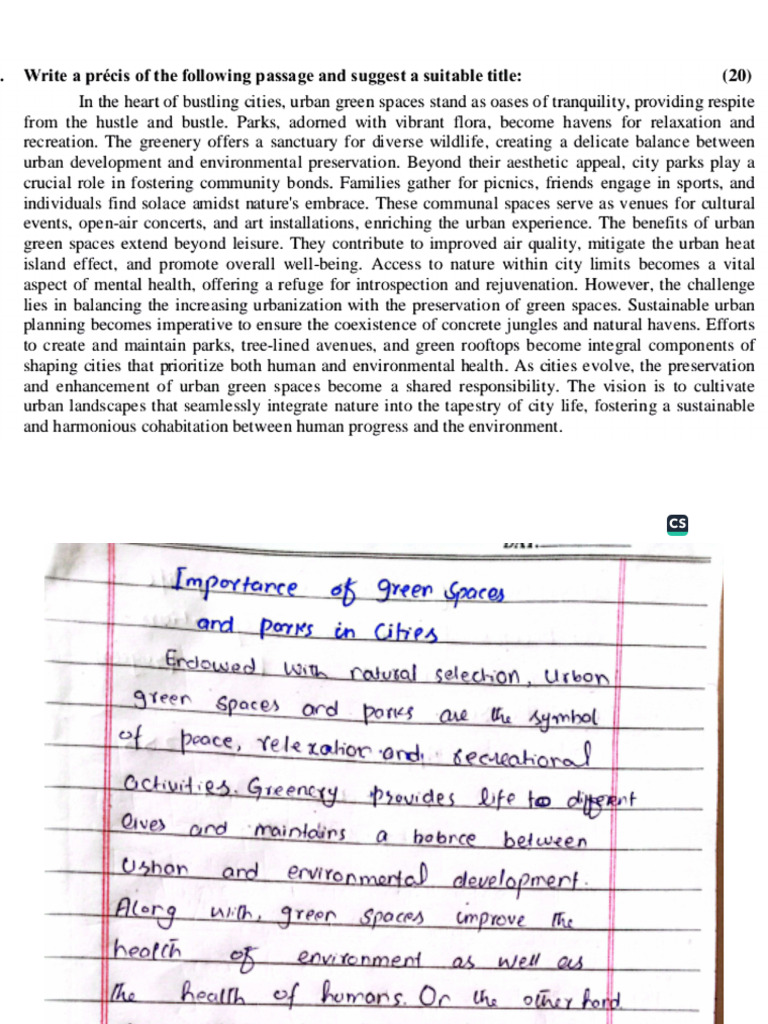 . Write a précis of the following passage and suggest a suitable title: (20)
In the heart of bustling cities, urban green spaces stand as oases of tranquility, providing respite
from the hustle and bustle. Parks, adorned with vibrant flora, become havens for relaxation and
recreation. The greenery offers a sanctuary for diverse wildlife, creating a delicate balance between
urban development and environmental preservation. Beyond their aesthetic appeal, city parks play a
crucial role in fostering community bonds. Families gather for picnics, friends engage in sports, and
individuals find solace amidst nature's embrace. These communal spaces serve as venues for cultural
events, open-air concerts, and art installations, enriching the urban experience. The benefits of urban
green spaces extend beyond leisure. They contribute to improved air quality, mitigate the urban heat
island effect, and promote overall well-being. Access to nature within city limits becomes a vital
aspect of mental health, offering a refuge for introspection and rejuvenation. However, the challenge
lies in balancing the increasing urbanization with the preservation of green spaces. Sustainable urban
planning becomes imperative to ensure the coexistence of concrete jungles and natural havens. Efforts
to create and maintain parks, tree-lined avenues, and green rooftops become integral components of
shaping cities that prioritize both human and environmental health. As cities evolve, the preservation
and enhancement of urban green spaces become a shared responsibility. The vision is to cultivate
urban landscapes that seamlessly integrate nature into the tapestry of city life, fostering a sustainable
and harmonious cohabitation between human progress and the environment.
CS
Importance of green spaces
and parks in cities
Endowed with natural selection, Urban
green spaces and parks are the symbol
of peace, relexation and recreational
activities. Greenery provides life to different
lives and maintains a balance between
Urban and environmental development.
Along with, green spaces improve the
health of environment as well as
the health of humans. On the other hand.